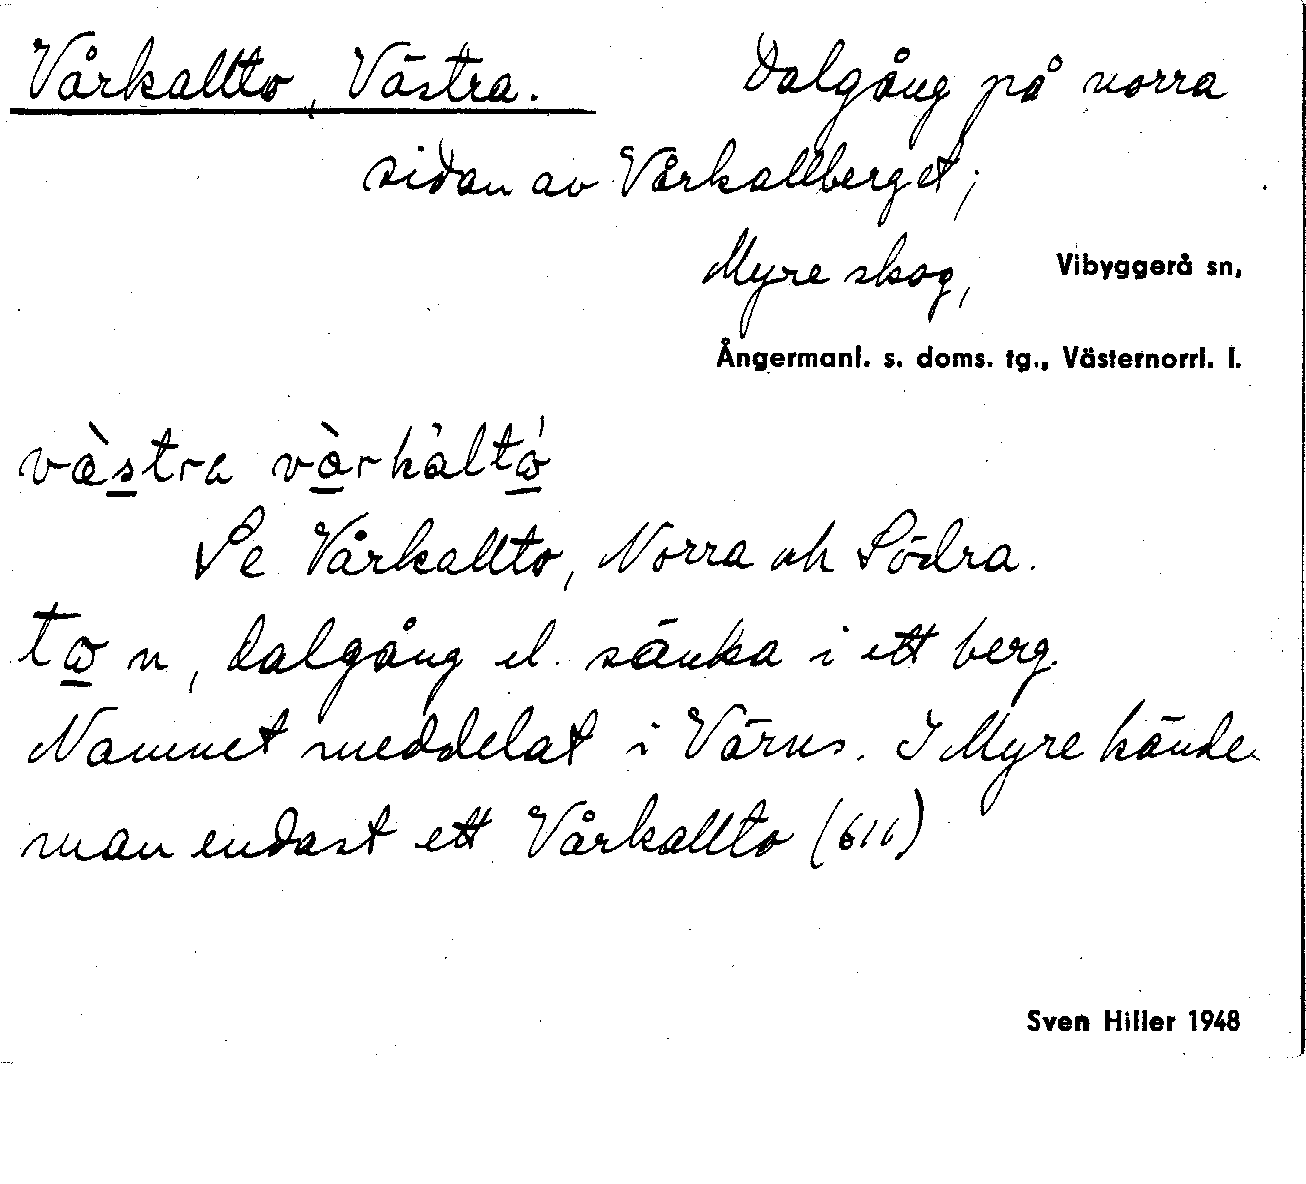 Vårkallto, Västra. Dalgång på norra
sidan av Vårkallberget;
Myre skog, Vibyggerå sn,
Ångermanl. s. doms. tg., Västernorrl. l.
vàstra vàrkàltó
Se Vårkallto, Norra och Södra.
to n, dalgång el. sänka i ett berg.
Namnet meddelat i Värns. I Myre kände
man endast ett Vårkallto (616)
Sven Hiller 1948